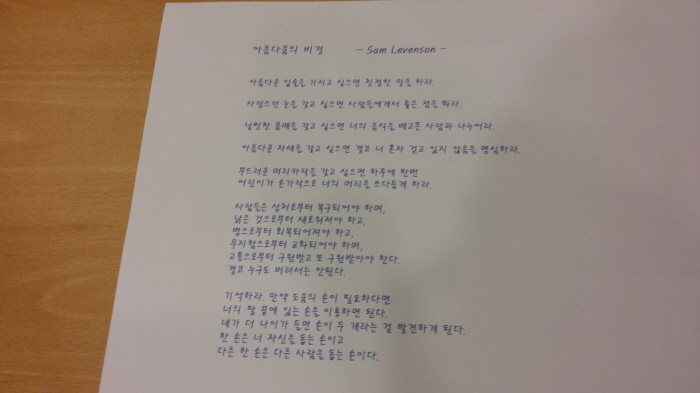 아름다움의 비결 - Sam Levenson -
아름다운 입술을 가지고 싶으면 친절한 말을 하라.
사랑스런 눈을 갖고 싶으면 사람들에게서 좋은 점을 봐라.
날씬한 몸매를 갖고 싶으면 너의 음식을 배고픈 사람과 나누어라.
아름다운 자세를 갖고 싶으면 결코 너 혼자 걷고 있지 않음을 명심하라.
부드러운 머리카락을 갖고 싶으면 하루에 한번
어린이가 손가락으로 너의 머리를 쓰다듬게 하라.
사람들은 상처로부터 복구되어야 하며,
낡은 것으로부터 새로워져야 하고,
병으로부터 회복되어져야 하고,
무지함으로부터 교화되어야 하며,
고통으로부터 구원받고 또 구원받아야 한다.
결코 누구도 버려서는 안된다.
기억하라. 만약 도움의 손이 필요하다면
너의 팔 끝에 있는 손을 이용하면 된다.
네가 더 나이가 들면 손이 두 개라는 걸 발견하게 된다.
한 손은 너 자신을 돕는 손이고
다른 한 손은 다른 사람을 돕는 손이다.